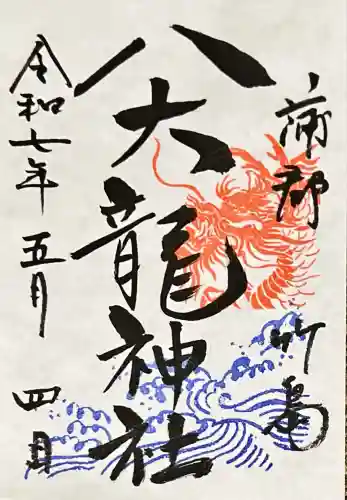 蒲郡 竹島
八大龍神社
令和七年 五月 四日